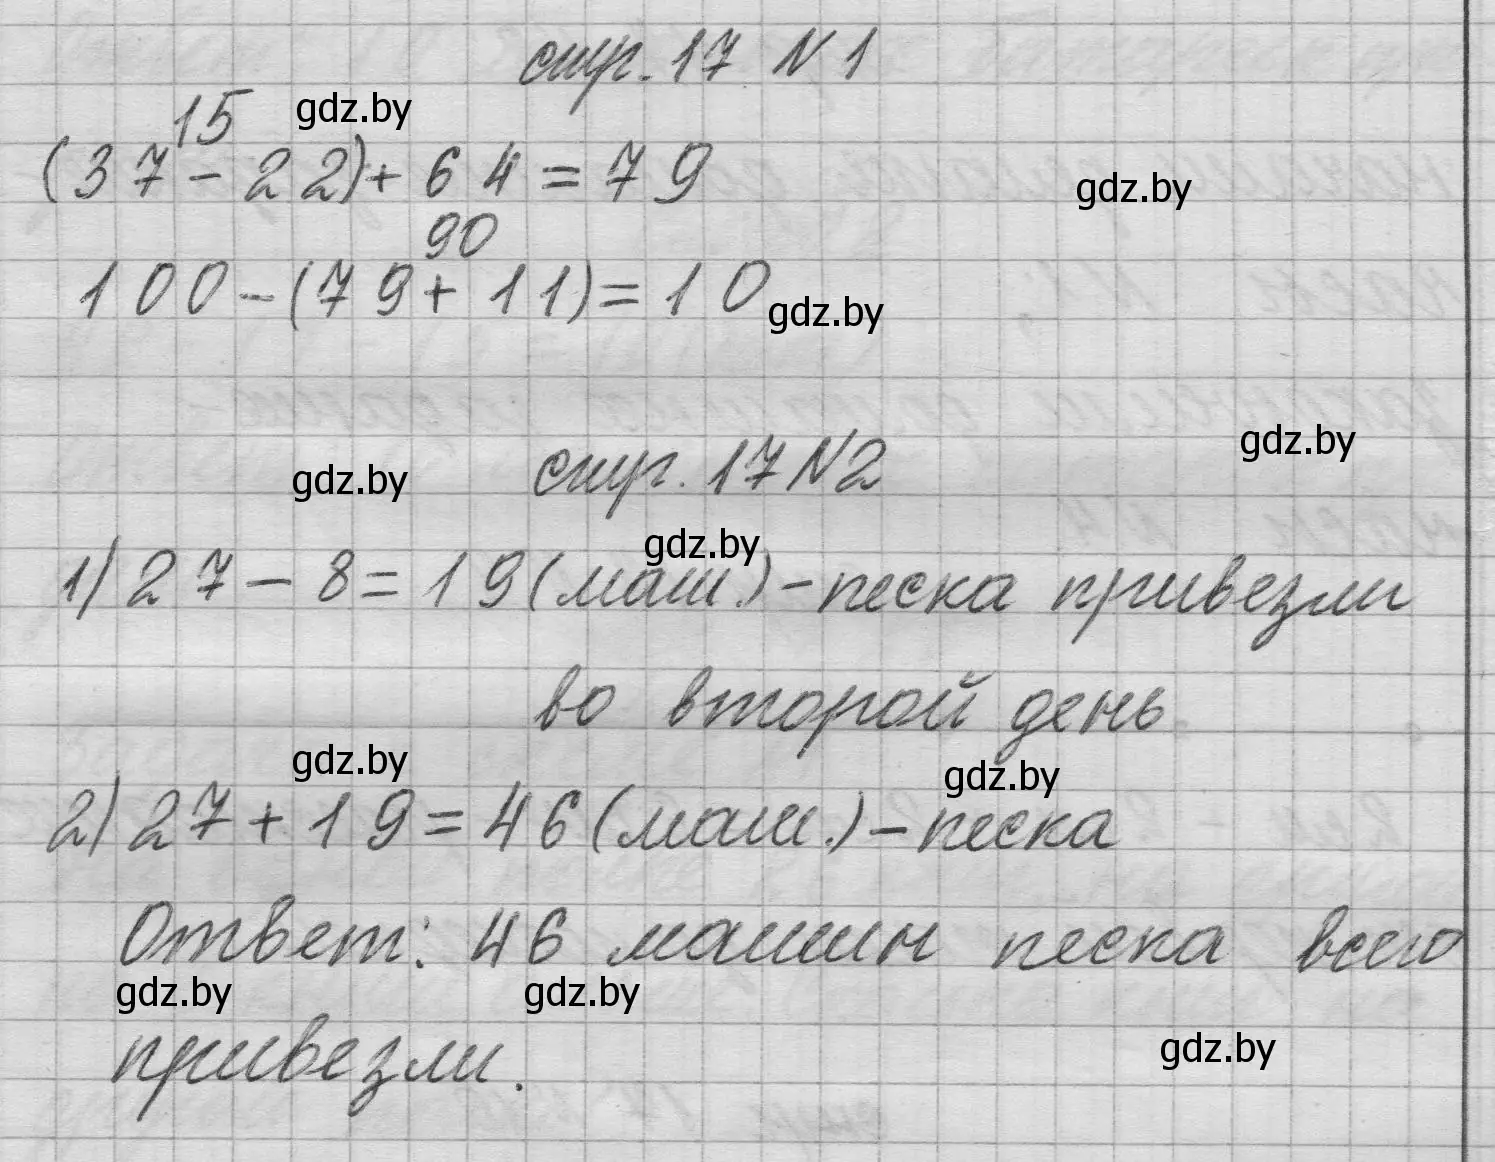 стр. 17 N 1
15
gdz.by
(37-22)+64=79
gdz.by
90
100-(79+11)=10
gdz.by
gdz.by
gdz.by
стр. 17 N2
gdz.by
1) 27-8=19(маш.)-песка привезли
во второй день
gdz.by
gdz.by
2) 27+19=46(маш.)-песка
Ответ: 46 машин песка всего
gdz.by
gdz.by
привезли.
gdz.by